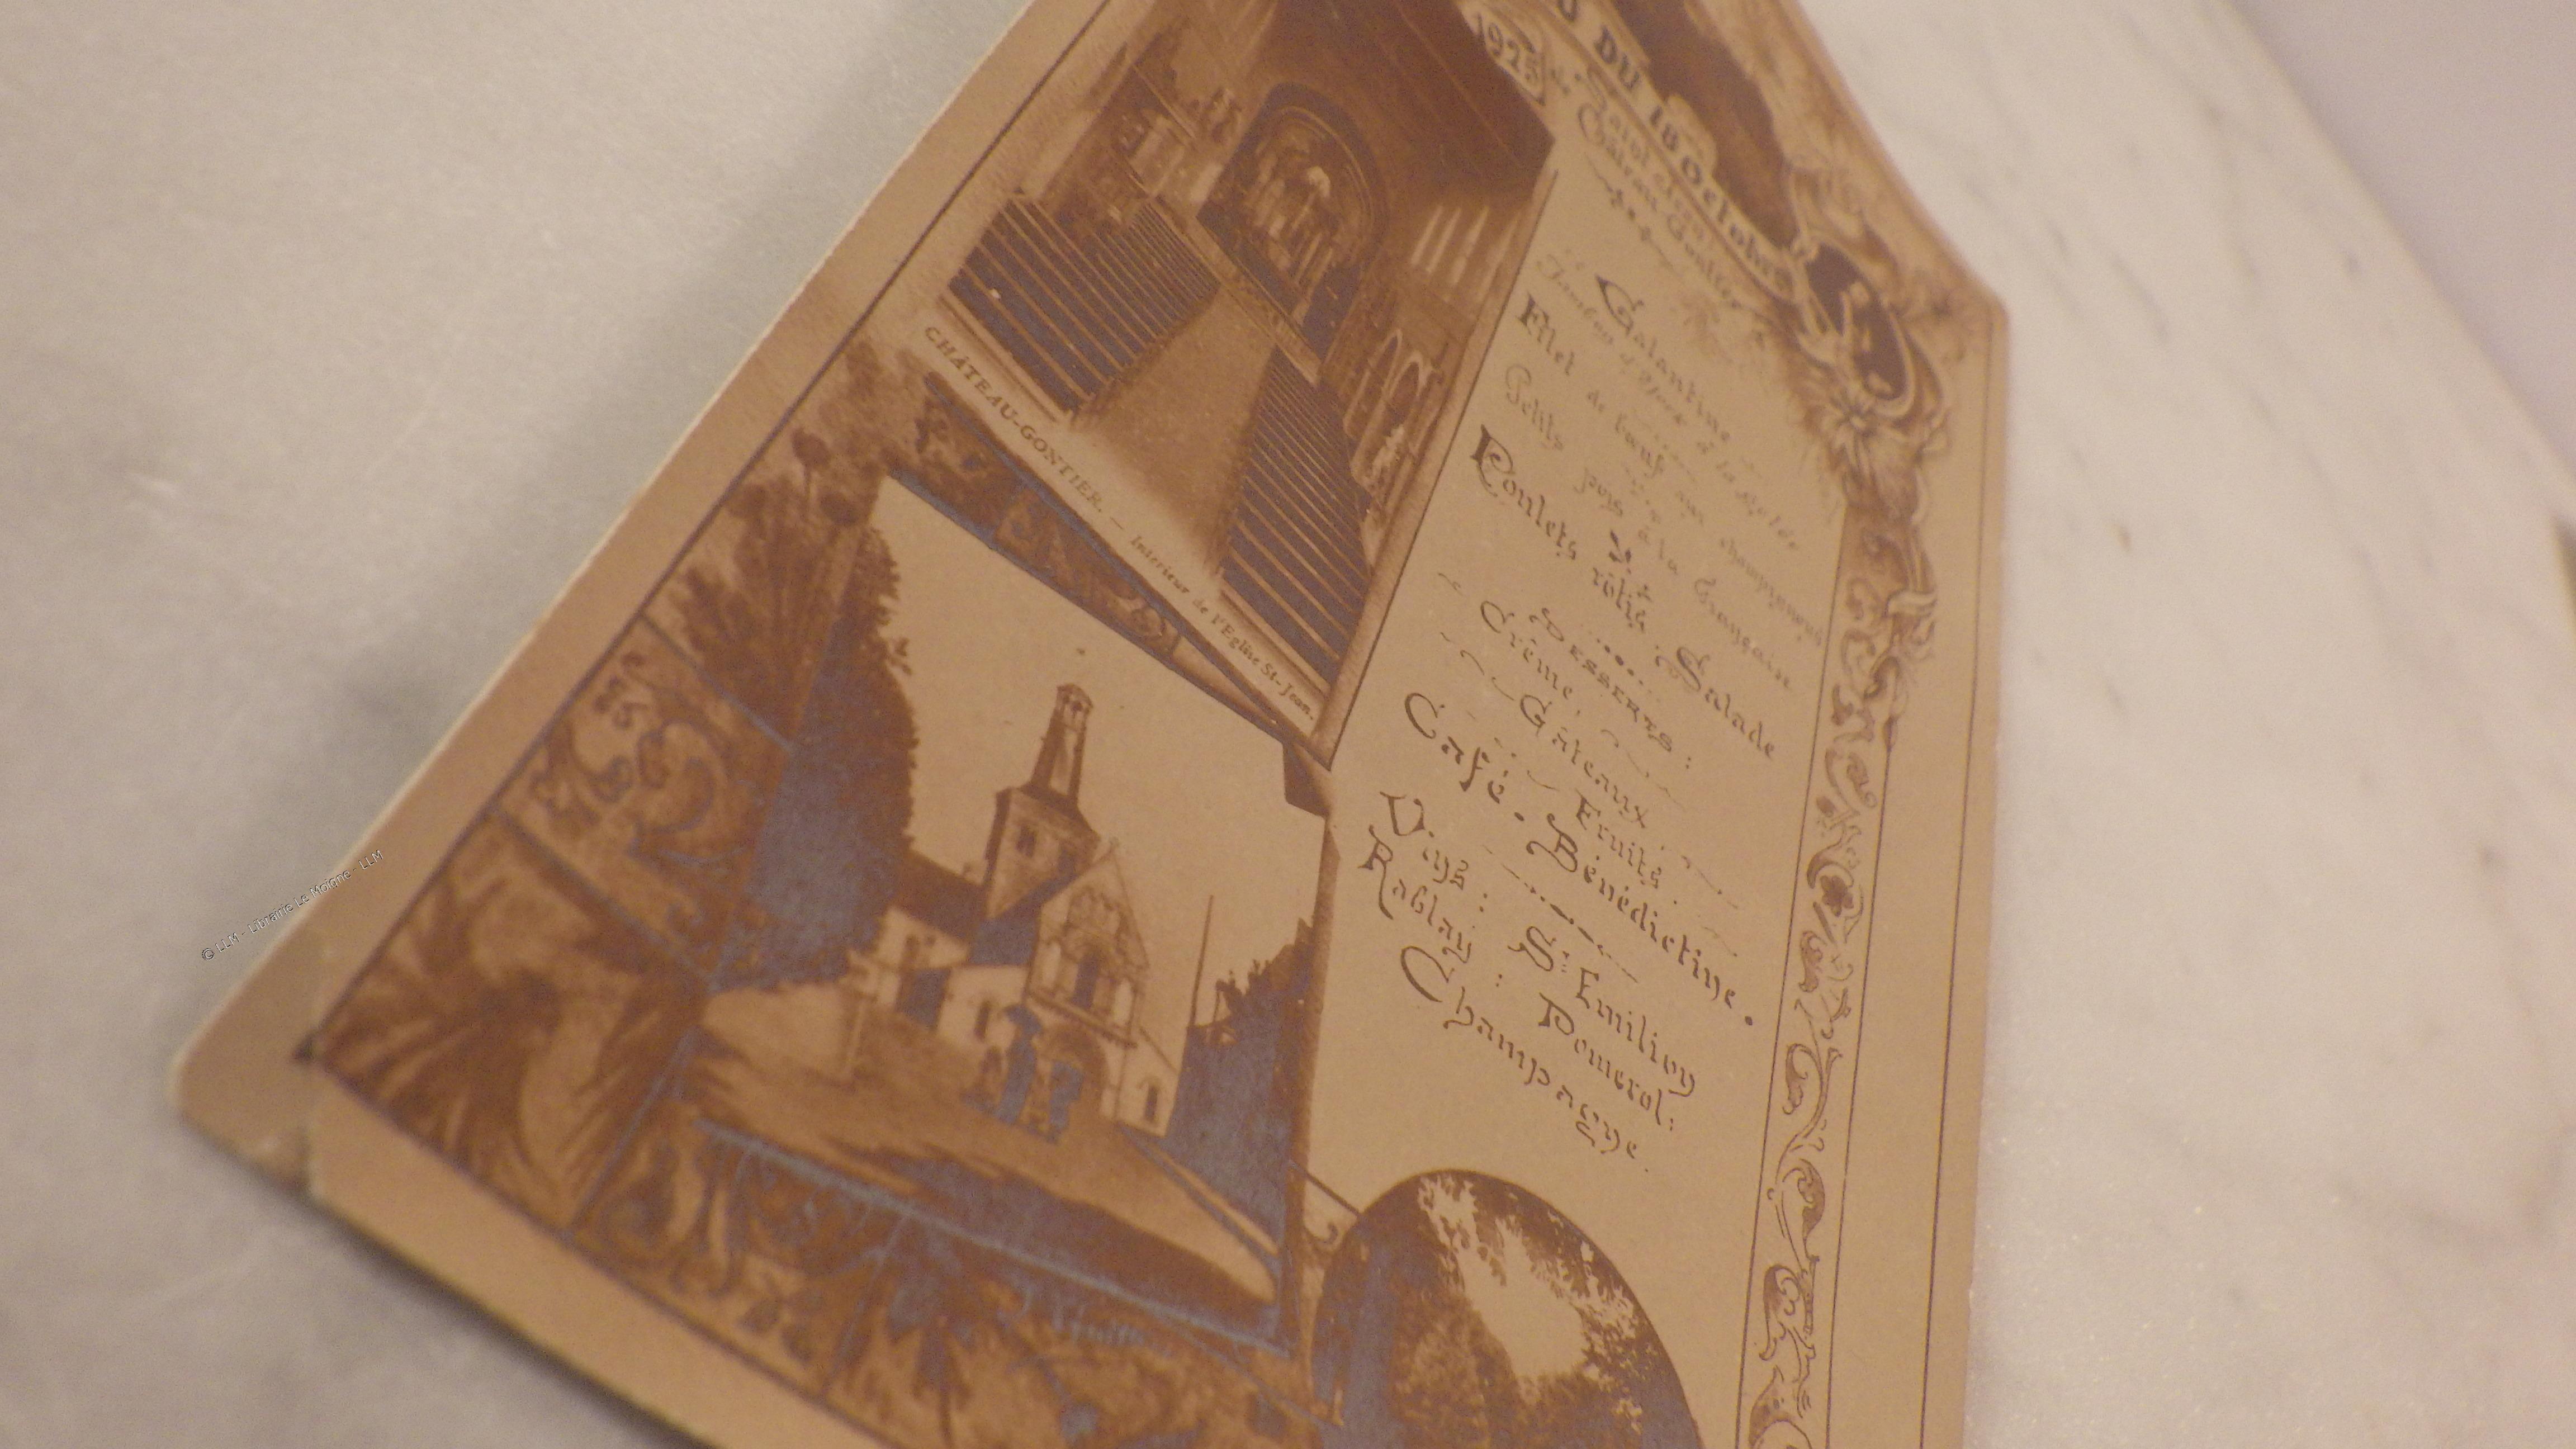 DU 18 Octobre
1925
Château-Gontier
Galantine
Filet de bœuf aux champignons
Petits pois à la Française
Poulets rôtis. Salade
Desserts:
Crème, Gâteaux Fruits.
Café. Bénédictine.
Vins: St Emilion
Rablay: Pomerol:
Champagne.
CHÂTEAU-GONTIER. — Intérieur de l'Eglise St-Jean.
© LLM - Librairie Le Moigne - LLM